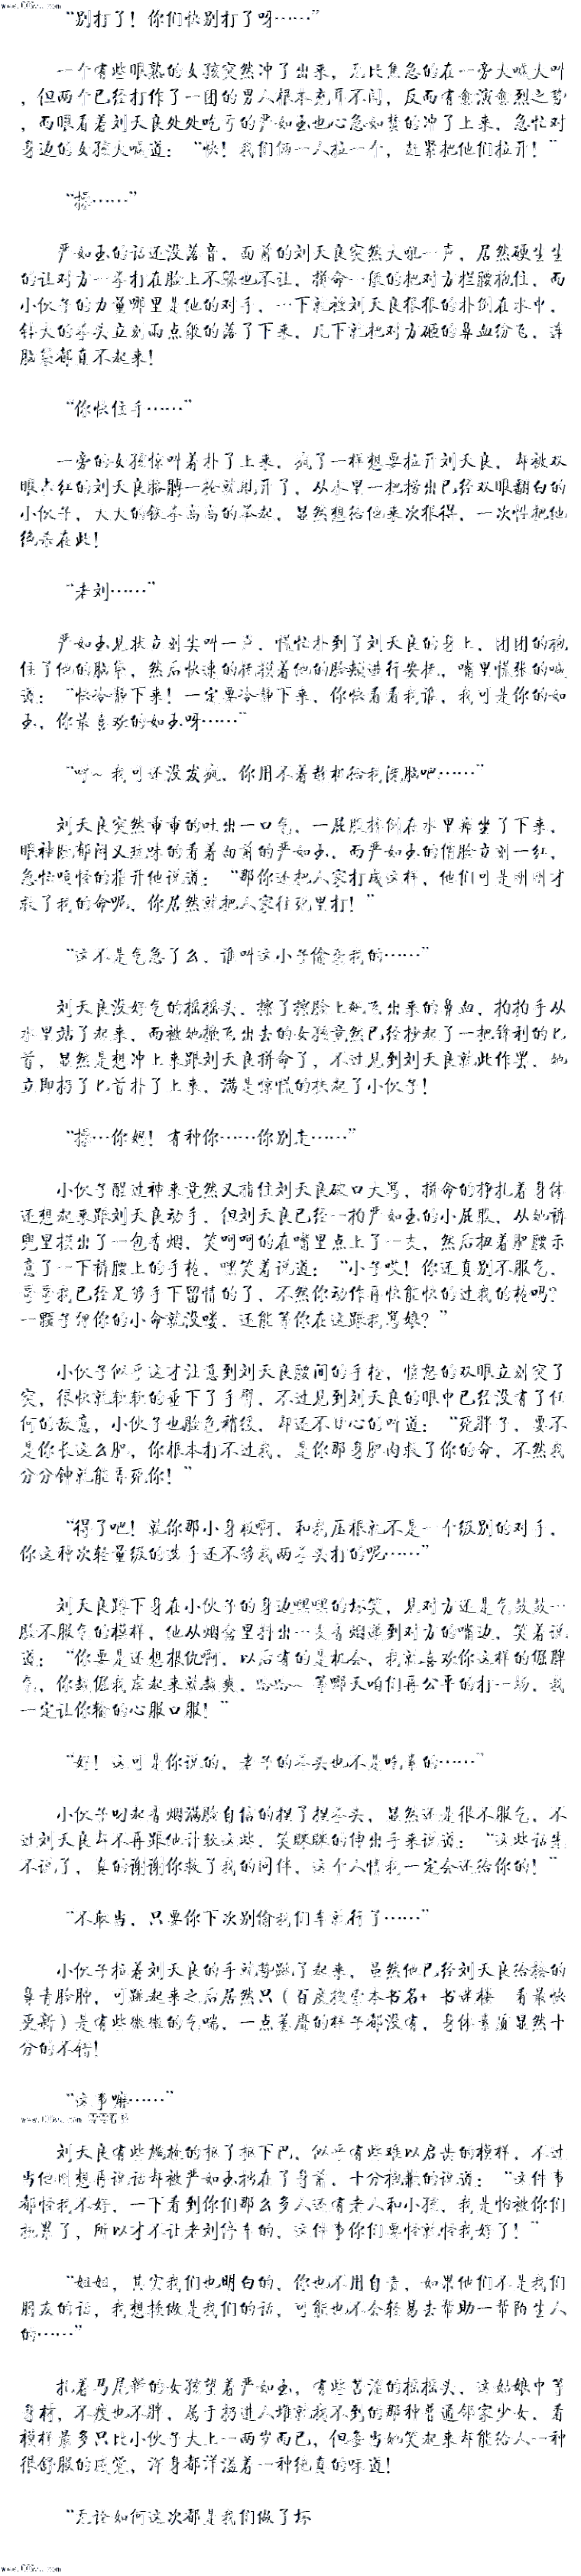 “别打了！你们快别打了呀……”
一个有些眼熟的女孩突然冲了出来，无比焦急的在一旁大喊大叫
，但两个已经打作了一团的男人根本充耳不闻，反而有愈演愈烈之势
，而眼看着刘天良处处吃亏的严如玉也心急如焚的冲了上来，急忙对
身边的女孩大喊道：“快！我们俩一人拉一个，赶紧把他们拉开！”
“操……”
严如玉的话还没落音，面前的刘天良突然大吼一声，居然硬生生
的让对方一拳打在脸上不躲也不让，拼命一般的把对方拦腰抱住，而
小伙子的力量哪里是他的对手，一下就被刘天良狠狠的扑倒在水中，
钵大的拳头立刻雨点般的落了下来，几下就把对方砸的鼻血纷飞，连
脑袋都直不起来！
“你快住手……”
一旁的女孩惊叫着扑了上来，疯了一样想要拉开刘天良，却被双
眼赤红的刘天良胳膊一抡就甩开了，从水里一把捞出已经双眼翻白的
小伙子，大大的铁拳高高的举起，显然想给他来次狠得，一次性把他
绝杀在此！
“老刘……”
严如玉见状立刻尖叫一声，慌忙扑到了刘天良的身上，团团的抱
住了他的脑袋，然后快速的抚摸着他的脸颊进行安抚，嘴里慌张的喊
道：“快冷静下来！一定要冷静下来，你快看看我谁，我可是你的如
玉，你最喜欢的如玉呀……”
“呼~我可还没发疯，你用不着替我给我洗脑吧……”
刘天良突然重重的吐出一口气，一屁股摔倒在水里瘫坐了下来，
眼神既郁闷又玩味的看着面前的严如玉，而严如玉的俏脸立刻一红，
急忙嗔怪的推开他说道：“那你还把人家打成这样，他们可是刚刚才
救了我的命呢，你居然就把人家往死里打！”
“这不是气急了么，谁叫这小子偷袭我的……”
刘天良没好气的摇摇头，擦了擦脸上飚飞出来的鼻血，拍拍手从
水里站了起来，而被她掀飞出去的女孩竟然已经抄起了一把锋利的匕
首，显然是想冲上来跟刘天良拼命了，不过见到刘天良就此作罢，她
立即扔了匕首扑了上来，满是惊慌的扶起了小伙子！
“操…你妈！有种你……你别走……”
小伙子醒过神来竟然又指住刘天良破口大骂，拼命的挣扎着身体
还想起来跟刘天良动手，但刘天良已经一拍严如玉的小屁股，从她裤
兜里摸出了一包香烟，笑呵呵的在嘴里点上了一支，然后扭着肥腰示
意了一下裤腰上的手枪，嘿笑着说道：“小子哎！你还真别不服气，
哥哥我已经足够手下留情的了，不然你动作再快能快的过我的枪吗？
一颗子弹你的小命就没喽，还能等你在这跟我骂娘？”
小伙子似乎这才注意到刘天良腰间的手枪，愤怒的双眼立刻突了
突，很快就软软的垂下了手臂，不过见到刘天良的眼中已经没有了任
何的敌意，小伙子也脸色稍缓，却还不甘心的叫道：“死胖子，要不
是你长这么肥，你根本打不过我，是你那身肥肉救了你的命，不然我
分分钟就能弄死你！”
“得了吧！就你那小身板啊，和我压根就不是一个级别的对手，
你这种次轻量级的选手还不够我两拳头打的呢……”
刘天良蹲下身在小伙子的身边嘿嘿的坏笑，见对方还是气鼓鼓一
脸不服气的模样，他从烟盒里抖出一支香烟递到对方的嘴边，笑着说
道：“你要是还想报仇啊，以后有的是机会，我就喜欢你这样的倔脾
气，你越倔我虐起来就越爽，哈哈~等哪天咱们再公平的打一场，我
一定让你输的心服口服！”
“好！这可是你说的，老子的拳头也不是吃素的……”
小伙子叼起香烟满脸自信的捏了捏拳头，显然还是很不服气，不
过刘天良却不再跟他计较这些，笑眯眯的伸出手来说道：“这些话先
不说了，真的谢谢你救了我的同伴，这个人情我一定会还给你的！”
“不敢当，只要你下次别偷我们车就行了……”
小伙子拍着刘天良的手就势跳了起来，虽然他已经刘天良给揍的
鼻青脸肿，可跳起来之后居然只（百度搜索本书名+ 书迷楼 看最快
更新）是有些微微的气喘，一点萎靡的样子都没有，身体素质显然十
分的不错！
“这事嘛……”
刘天良有些尴尬的抠了抠下巴，似乎有些难以启齿的模样，不过
当他刚想再说话却被严如玉挡在了身前，十分抱歉的说道：“这件事
都怪我不好，一下看到你们那么多人还有老人和小孩，我是怕被你们
拖累了，所以才不让老刘停车的，这件事你们要怪就怪我好了！”
“姐姐，其实我们也明白的，你也不用自责，如果他们不是我们
朋友的话，我想换做是我们的话，可能也不会轻易去帮助一帮陌生人
的……”
扎着马尾辫的女孩望着严如玉，有些苦涩的摇摇头，这姑娘中等
身材，不瘦也不胖，属于扔进人堆就找不到的那种普通邻家少女，看
模样最多只比小伙子大上一两岁而已，但每当她笑起来却能给人一种
很舒服的感觉，浑身都洋溢着一种纯真的味道！
“无论如何这次都是我们做了坏